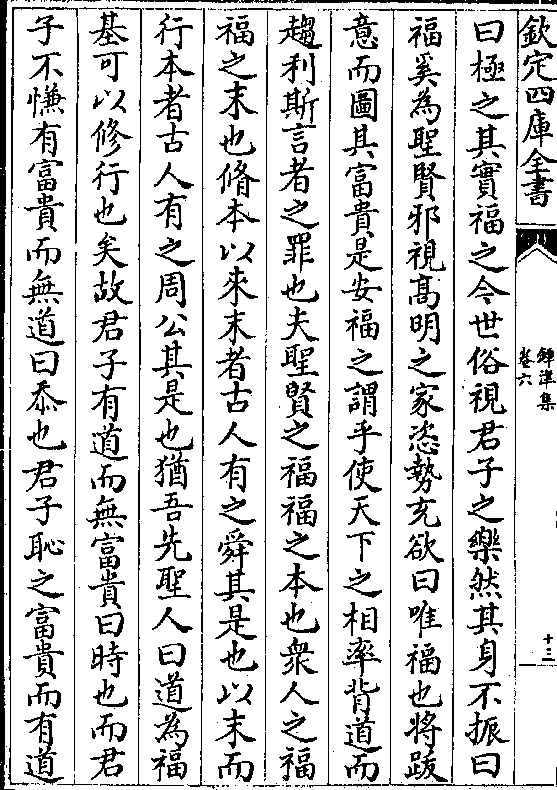 欽定四庫全書
鐔津集
卷六
十三
曰極之其實福之今世俗視君子之樂然其身不振曰
福奚為聖賢邪視髙明之家恣勢充欲曰唯福也將跋
意而圖其富貴是安福之謂乎使天下之相率背道而
趨利斯言者之罪也夫聖賢之福福之本也衆人之福
福之末也脩本以來末者古人有之舜其是也以末而
行本者古人有之周公其是也猶吾先聖人曰道為福
基可以修行也矣故君子有道而無富貴曰時也而君
子不慊有富貴而無道曰忝也君子恥之富貴而有道